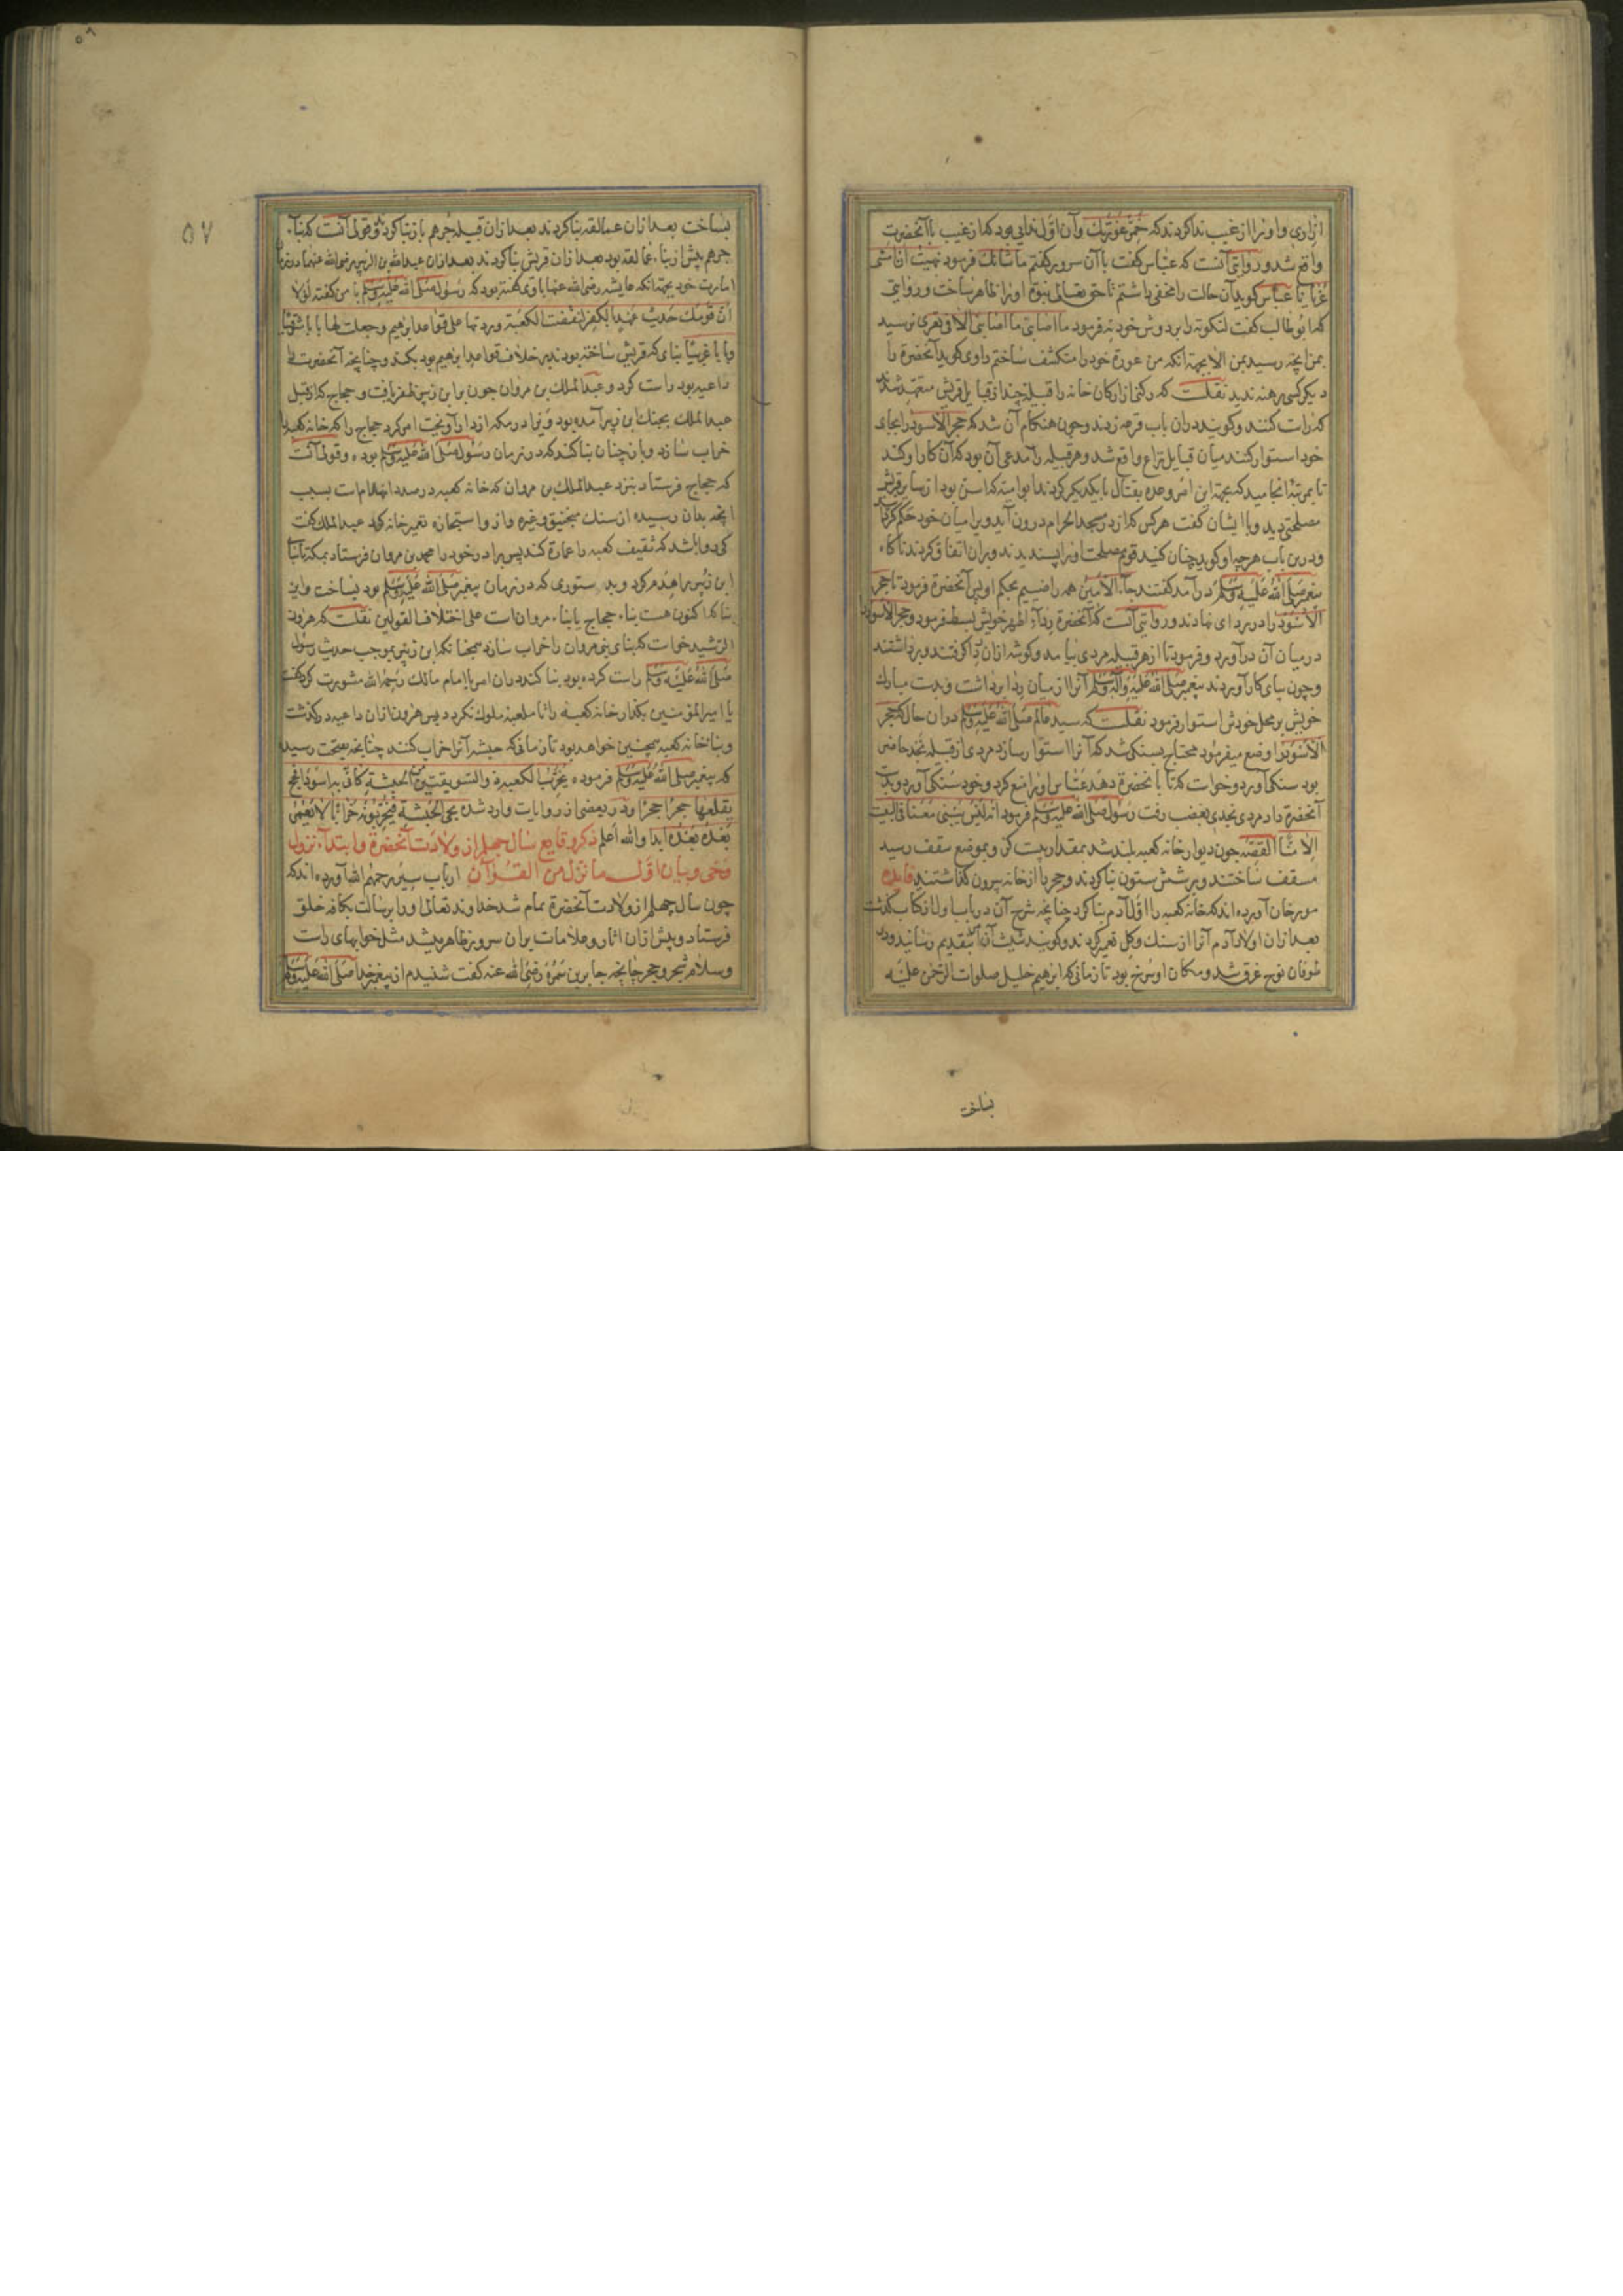 ازاری و او را از غیب ندا کردند که خمّر عورتک و آن اول ندایی بود که از غیب با آنحضرت
واقع شد و روایتی آنست که عباس گفت با آن سرور گفتم ما شانک فرمود نهیت ان امشی
عریانا عباس کوید آن حالت را مخفی داشتم تا حق تعالی نبوة او را ظاهر ساخت و روایتی
که ابوطالب گفت فرمود ما اصابنی ما اصابنی الا فی تعری نرسید
بمن انچه رسید بمن الا بجهة آنکه من عورة خود را منکشف ساختم راوی کوید آنحضرة را
دیکر کسی برهنه ندید نقلست که رکنی از ارکان خانه را قبیله چند از قبایل قریش متعهد شدند
که راست کنند و کویند دران باب قرعه زدند و چون هنکام آن شد که حجر الاسود را بجای
خود استوار کنند میان قبایل نزاع واقع شد و هر قبیله را مدعی آن بود که آن کار او کند
تا بمرتبه انجامید که بجهة این امر وعده بقتال با یکدیکر کردند ابو امیه که اسن بود از سایر قریش
مصلحتی دید و با ایشان گفت هر کس که از در مسجد الحرام درون آید ویرا میان خود حکم کردانید
و درین باب هر چه او کوید چنان کنید قوم مصلحت او را پسندیدند و بران اتفاق کردند ناکاه
پیغمبر صلی الله علیه وسلم در آمد گفتند جاء الامین همه راضییم بحکم او پس آنحضرة فرمود تا حجر
الاسود را در بردای نهادند و روایتی آنست که آنحضرة رداء اطهر خویش بسط فرمود و حجر الاسود را
در میان آن درآورد و فرمود تا از هر قبیله مردی بیامد و کوشه ازان ردا کرفتند و برداشتند
و چون بپای کار آوردند پیغمبر صلی الله علیه وآله وسلم آنرا از میان ردا برداشت و بدست مبارک
خویش بر محل خودش استوار فرمود نقلست که سید عالم صلی الله علیه وسلم دران حال که حجر
الاسود را وضع میفرمود محتاج بسنکی شد که آنرا استوار سازد مردی از قبیله نجد حاضر
بود سنکی آورد و خواست که تا با آنحضرة دهد عباس او را منع کرد و خود سنکی آورد و بدست
آنحضرة داد مرد نجدی بغضب رفت رسول صلی الله علیه وسلم فرمود انه لیس یبنی معنا فی البیت
الا منا القصه چون دیوار خانه کعبه بلند شد بمقدار بیست کز و بموضع سقف رسید
مسقف ساختند و بر شش ستون بنا کردند و حجر را از خانه بیرون کذاشتند فایده
مورخان آورده اند که خانه کعبه را اول آدم بنا کرد چنانچه شرح آن در باب اول از کتاب کذشت
بعد ازان اولاد آدم آنرا از سنک و کل تعمیر کردند و کویند شیث آنرا بتقدیم رسانید و در
طوفان نوح غرق شد و مکان او سرخ بود تا زمانی که ابراهیم خلیل صلوات الرحمن علیه
بساخت
۵۸
۵۷
بساخت بعد ازان عمالقه بنا کردند بعد ازان قبیله جرهم باز بنا کرد و قولی آنست که بناء
جرهم پیش از بناء عمالقه بود بعد ازان قریش بنا کردند بعد ازان عبدالله بن الزبیر رضی الله عنهما در زمان
امارت خود بجهة انکه عایشه رضی الله عنها با وی گفته بود که رسول صلی الله علیه وسلم با من گفته لولا
ان قومک حدیث عهد بالکفر لنقضت الکعبة ورددتها علی قواعد ابراهیم وجعلت لها بابا شرقیا
وبابا غربیا بنای که قریش ساخته بودند بر خلاف قواعد ابراهیم بود بکند و چنانچه آنحضرت را
داعیه بود راست کرد و عبد الملک بن مروان چون بر ابن زبیر ظفر یافت و حجاج که از قبل
عبد الملک بجنک ابن زبیر آمده بود ویرا در مکه از دار آویخت امر کرد حجاج را که خانه کعبه را
خراب سازد و باز چنان بنا کند که در زمان رسول صلی الله علیه وسلم بوده و قولی آنست
که حجاج فرستاد بنزد عبدالملک بن مروان که خانه کعبه در صدد انهدام است بسبب
انچه بدان رسیده از سنک منجنیق و غیره و ازو استجازه تعمیر خانه کرد عبد الملک گفت
کی روا باشد که ثقیف کعبه را عمارة کند پس برادر خود را محمد بن مروان فرستاد بمکه تا بناء
ابن زبیر را هدم کرد و بدستوری که در زمان پیغمبر صلی الله علیه وسلم بود بساخت و این
بنا که اکنون هست بناء حجاج یا بناء مروانست علی اختلاف القولین نقلست که هرون
الرشید خواست که بنای بنی مروان را خراب سازد همچنانکه ابن زبیر بموجب حدیث رسول
صلی الله علیه وسلم راست کرده بود بنا کند دران امر با امام مالک رحمه الله مشورت کرد گفت
یا امیرالمؤمنین بکذار خانه کعبه را تا ملعبه ملوک نکردد پس هرون ازان داعیه درکذشت
و بنا خانه کعبه همچنین خواهد بود تا زمانی که حبشه آنرا خراب کنند چنانچه بصحت رسیده
که پیغمبر صلی الله علیه وسلم فرموده یخرب الکعبة ذو السویقتین من الحبشة کانی به اسود افحج
یقلعها حجرا حجرا و در بعضی از روایات وارد شده یجی الحبشة فیخربونه خرابا لا یعمر
بعده ابدا والله اعلم ذکر وقایع سال چهلم از ولادت آنحضرة و ابتداء نزول
وحی و بیان اول ما نزل من القرآن ارباب سیر رحمهم الله آورده اند که
چون سال چهلم از ولادت آنحضرة تمام شد خداوند تعالی او را برسالت بکافه خلق
فرستاد و پیش ازان اثار و علامات بران سرور ظاهر میشد مثل خوابهای راست
و سلام شجر و حجر چنانچه جابر بن سمره رضی الله عنه گفت شنیدم از پیغمبر خدا صلی الله علیه وسلم